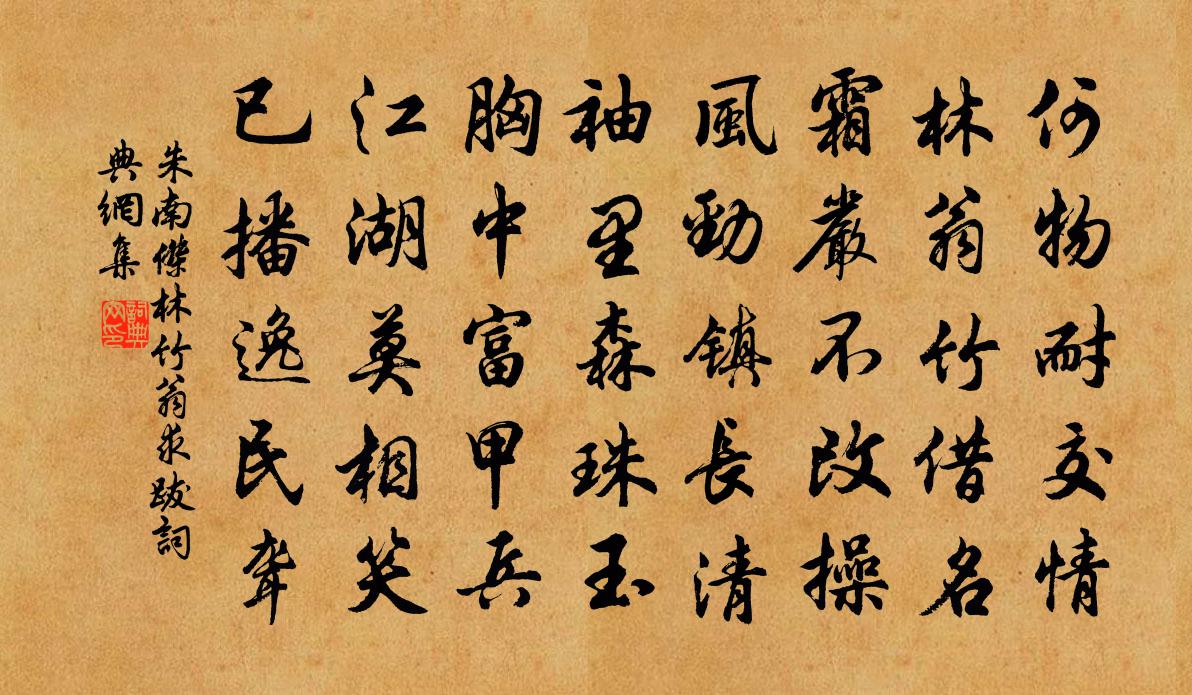 何物耐交情
林翁竹借名
霜嚴不改操
風勁鎮長清
袖里森珠玉
胸中富甲兵
江湖莫相笑
已播逸民聲
朱南傑林竹翁求跋詞
典網集
詞典
网印